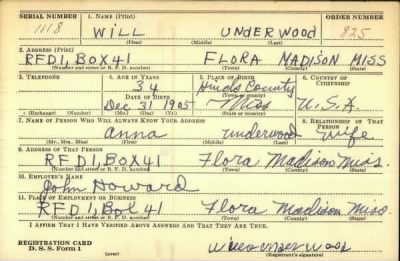 SERIAL NUMBER 1. NAME (Print) ORDER NUMBER
1118 WILL UNDERWOOD 825
(First) (Middle) (Last)
2. ADDRESS (Print)
RFD1, BOX41 FLORA MADISON MISS
(Number and street or R. F. D. number) (Town) (County) (State)
3. TELEPHONE 4. AGE IN YEARS 5. PLACE OF BIRTH 6. COUNTRY OF CITIZENSHIP
34 Hinds County
DATE OF BIRTH (Town or county)
Dec 31 1905 Miss U.S.A
(Exchange) (Number) (Mo.) (Day) (Yr.) (State or country)
7. NAME OF PERSON WHO WILL ALWAYS KNOW YOUR ADDRESS 8. RELATIONSHIP OF THAT PERSON
Anna Underwood Wife
(Mr., Mrs., Miss) (First) (Middle) (Last)
9. ADDRESS OF THAT PERSON
RFD1, BOX41 Flora Madison Miss.
(Number and street or R. F. D. number) (Town) (County) (State)
10. EMPLOYER'S NAME
John Howard
11. PLACE OF EMPLOYMENT OR BUSINESS
RFD1, Box 41 Flora Madison Miss.
(Number and street or R. F. D. number) (Town) (County) (State)
I AFFIRM THAT I HAVE VERIFIED ABOVE ANSWERS AND THAT THEY ARE TRUE.
REGISTRATION CARD
D. S. S. Form 1 (over) (Registrant's signature)